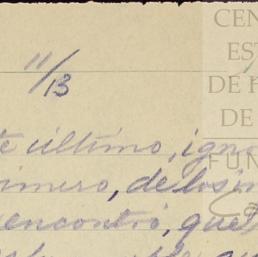 11/13
te último, igno
rimero, de los in
encontró, que
CEN
EST
DE H
DE
FUN